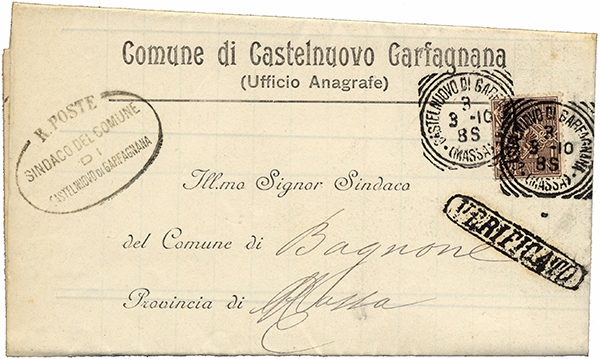 Comune di Castelnuovo Garfagnana
(Ufficio Anagrafe)
R. POSTE
SINDACO DEL COMUNE
DI
CASTELNUOVO DI GARFAGNANA
CASTELNUOVO DI GARF
3
3 - 10
8S
(MASSA)
CASTELNUOVO DI GARFAGNANA
3
3 - 10
8S
(MASSA)
Ill.mo Signor Sindaco
VERIFICATO
del Comune di Bagnone
Provincia di Massa